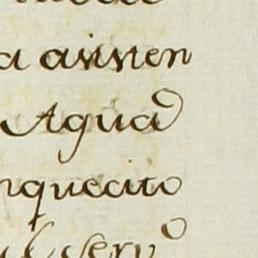 a asisten
Agua
nquecito
il serv.º